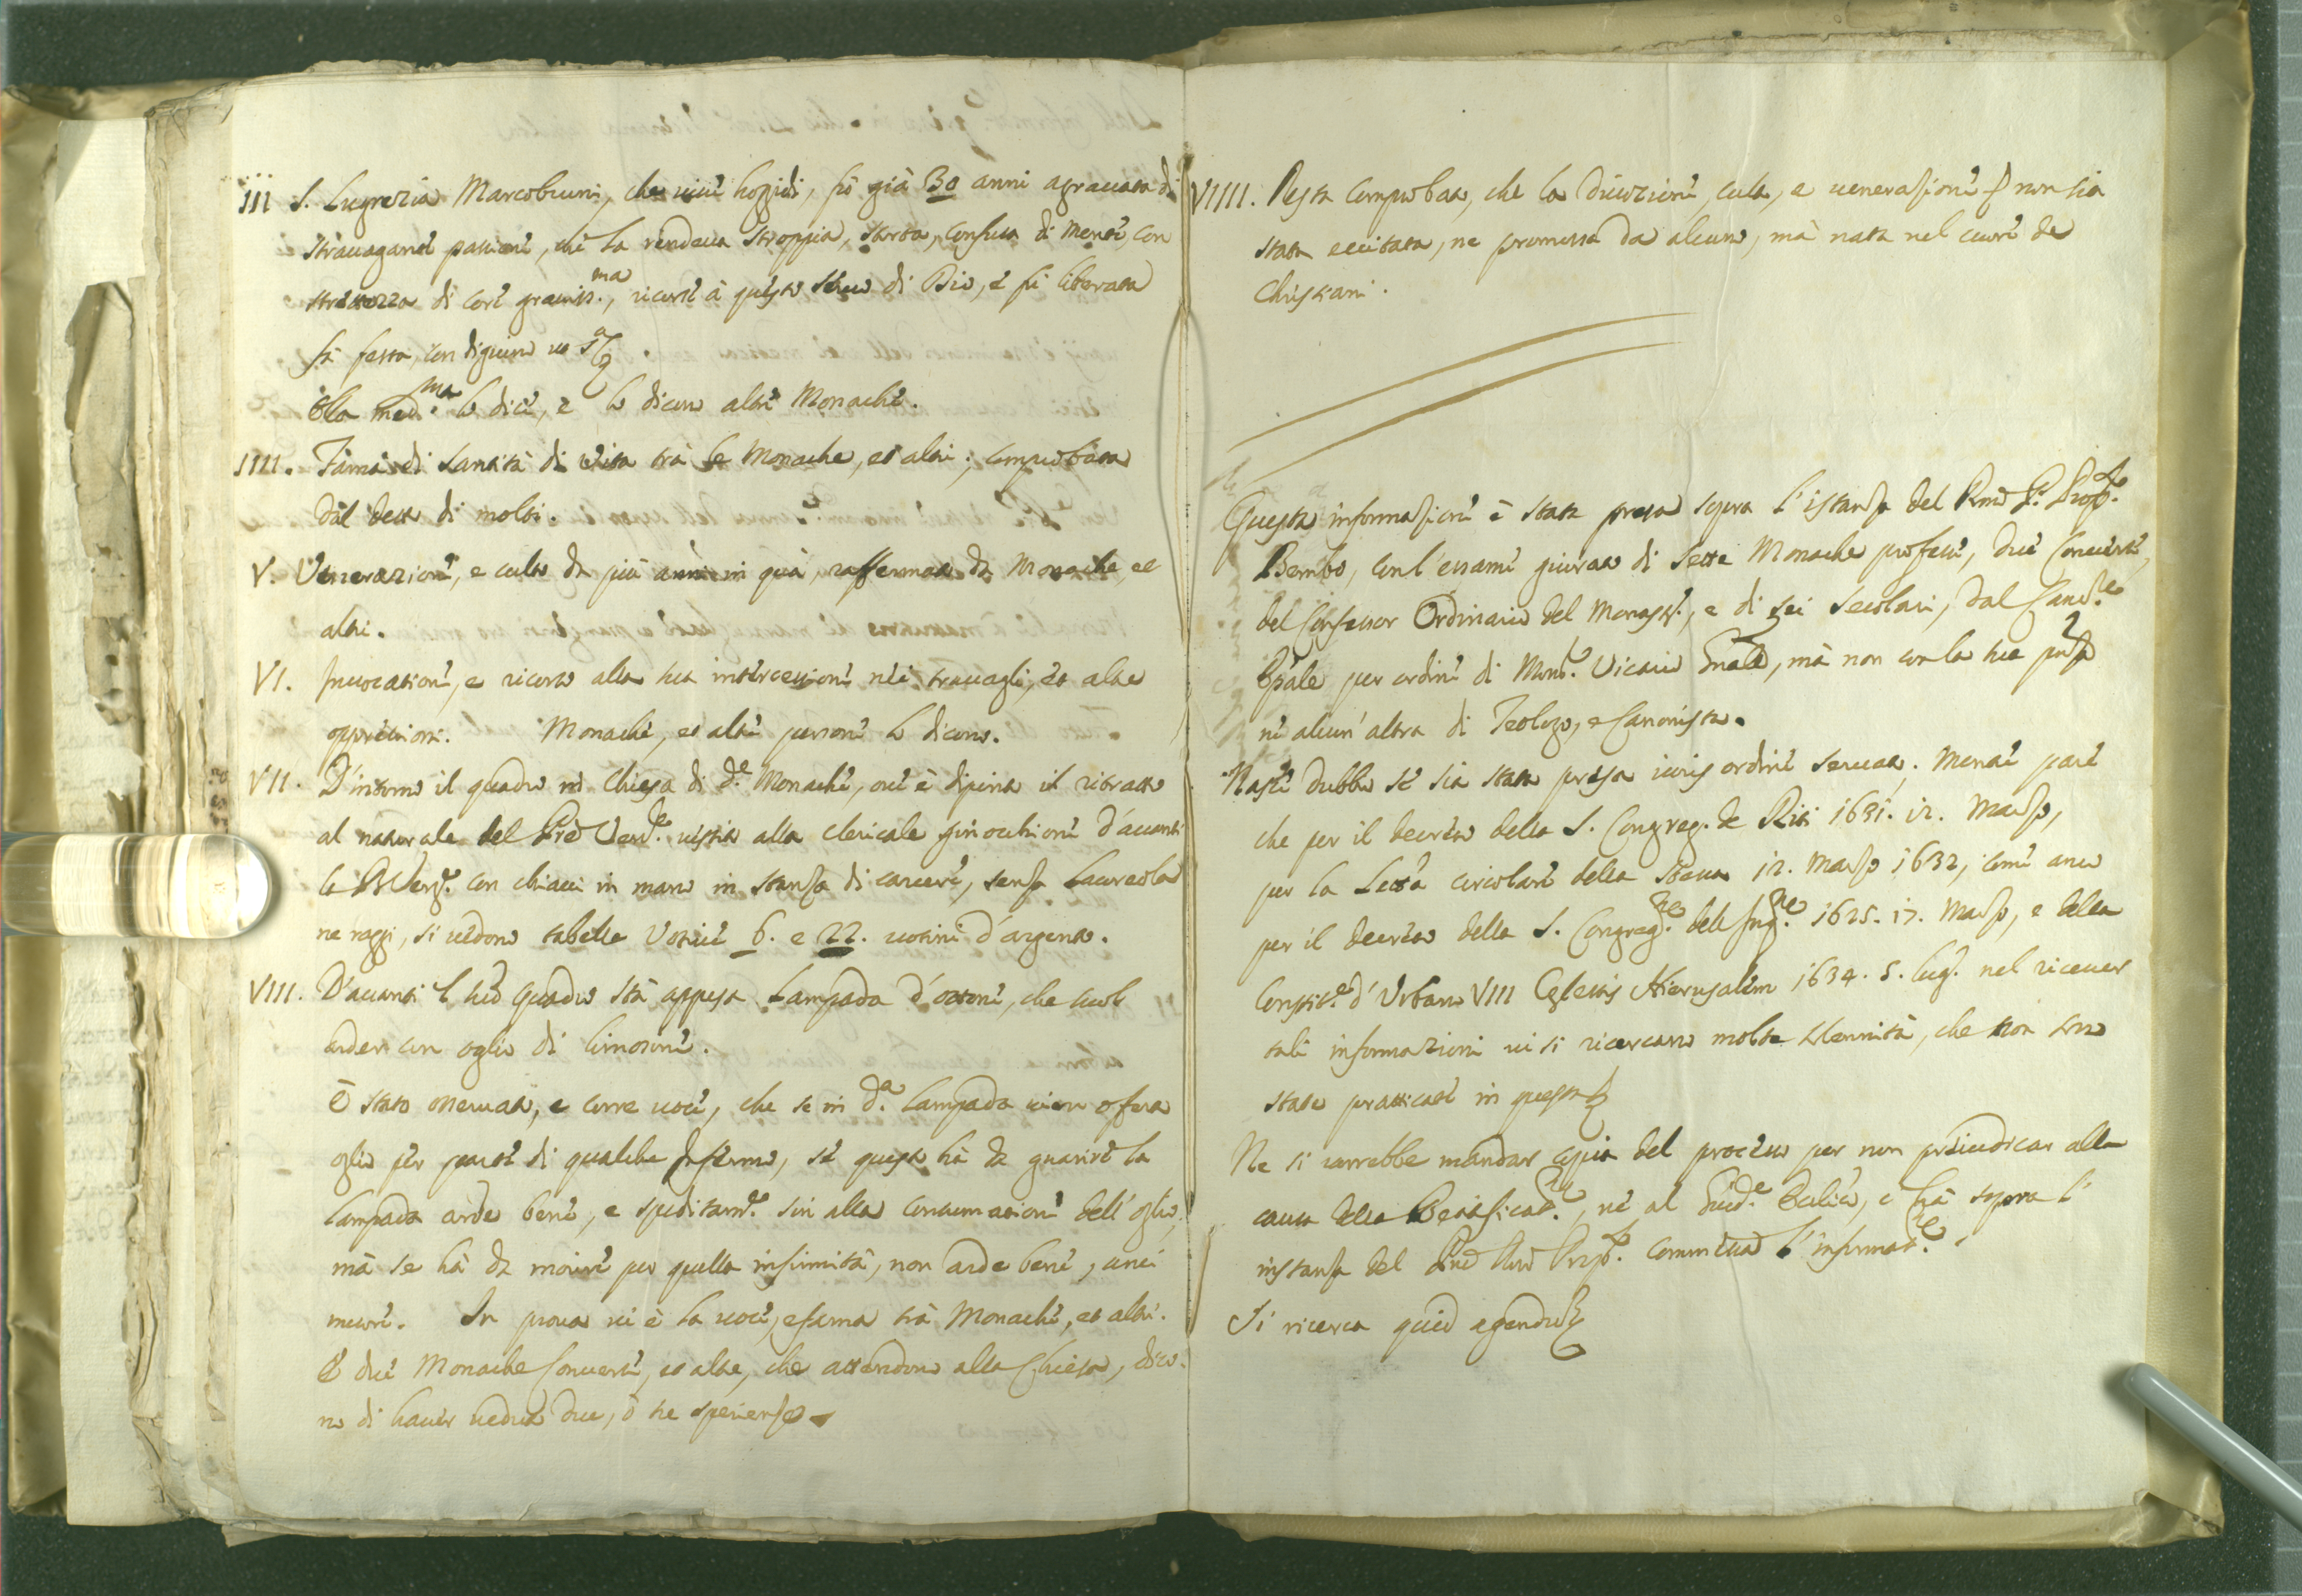 III S. Lugrezia Marcobruni, che viue hoggidi, fù già 30 anni agrauata da
strauaganti passioni, che la rendeua stroppia, storta, confusa di mente, con
strettezza di core grauiss.ma, ricorse à questo seruo di Dio, e fù liberata
la festa, con digiuno
Ella med.ma lo dice, e lo dicono altre Monache.
IIII. Fama di santità di vita trà le Monache, et altri; comprobata
dal detto di molti.
V. Venerazione, e culto da più anni in quà, raffermata da Monache, et
altri.
VI. Inuocatione, e ricorso alla sua intercessione nei trauagli, et altre
oppressioni. Monache, et altre persone lo dicono.
VII. D'intorno il quadro in Chiesa di d.e Monache, oue è dipinto il ritratto
al naturale del P̃re Ven.le vestito alla clericale ginocchione d'auanti
la B. Verg.e con chiaui in mano in stanza di carcere, senza Laureola
ne raggi, si vedono tabelle Votiue 6. e 22. uotiui d'argento.
VIII. D'auanti il sud.o Quadro stà appesa Lampada d'ottone, che suol
arder con oglio di limosine.
È stato osseruato, e corre uoce, che se in d.a Lampada uien offerto
oglio per parte di qualche Infermo, se questo hà da guarire la
lampada arde bene, e speditam.te sin alla consumatione dell'oglio,
mà se hà da morire per quella infirmità, non arde bene, anci
more. In proua ui è la uoce, e fama trà Monache, et altri.
E due Monache Conuerse, et altre, che attendono alla Chiesa, dico-
no di hauer ueduto due, ò tre sperienze
VIIII. Resta comprobato, che la diuozione, culto, e uenerazione non sia
stata eccitata, ne promossa da alcuno, mà nata nel cuore de
Christiani.
Questa informazione è stata presa sopra l'istanza del Rmo P. Prep.to
Bembo, con l'essame giurato di sette Monache professe, due Conuerse,
del Confessor Ordinario del Monast.o, e di sei secolari, dal Canc.re
Epãle per ordine di Mons.r Vicario Gñale, mà non con la sua pñza
ne alcun'altra di Teologo, e Canonista.
Nasce dubbio se sia stata presa iuris ordine seruato; mentre pare
che per il decreto della S. Congreg. de Riti 1631. 12. Marzo,
per la Lettera circolare della stessa 12. Marzo 1632, come anco
per il decreto della S. Congreg.ne dell'Inq.ne 1625. 13. Marzo, e della
Constit.e d'Urbano VIII Cœlestis Hierusalem 1634. 5. lug.o nel riceuer
tali informazioni ui si ricercano molte solennità, che non sono
state pratticate in questa
Ne si uorrebbe mandar copia del processo per non preiudicar alla
causa della Beatificat.ne, ne al Giud.e Delic.o, c'hà sopra l'
instanza del Prep.to commessa l'informat.ne.
Si ricerca quid agendum